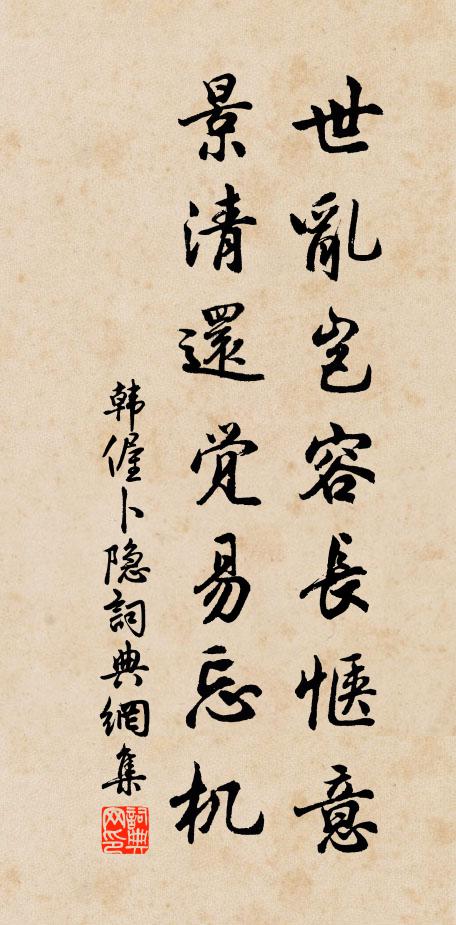 世亂岂容長愜意
景清還觉易忘机
韩偓卜隐詞典網集
詞典网印